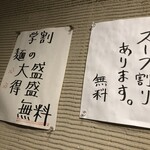 学割
麺の
大盛
得盛
無料
スープ割り
あります。
無料